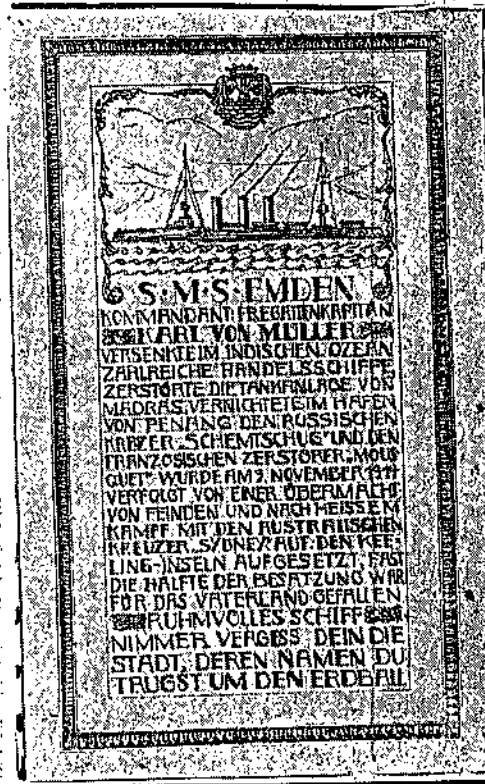 S·M·S·EMDEN
KOMMANDANT: FREGATTENKAPITÄN
KARL VON MÜLLER
VERSENKTE IM INDISCHEN OZEAN
ZAHLREICHE HANDELSSCHIFFE,
ZERSTÖRTE DIE TANKANLAGE VON
MADRAS, VERNICHTETE IM HAFEN
VON PENANG DEN RUSSISCHEN
KREUZER „SCHEMTSCHUG" UND DEN
FRANZÖSISCHEN ZERSTÖRER „MOUS
QUET" WURDE AM 9. NOVEMBER 1914
VERFOLGT VON EINER ÜBERMACHT
VON FEINDEN UND NACH HEISSEM
KAMPF MIT DEN AUSTRALISCHEN
KREUZER „SYDNEY" AUF DEN KEE-
LING-INSELN AUFGESETZT, FAST
DIE HÄLFTE DER BESATZUNG WAR
FÜR DAS VATERLAND GEFALLEN
RUHMVOLLES SCHIFF
NIMMER VERGISS DEIN DIE
STADT, DEREN NAMEN DU
TRUGST UM DEN ERDBALL